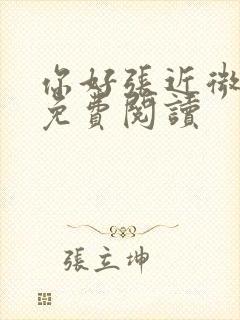 你好張近微
免費閱讀
張立坤